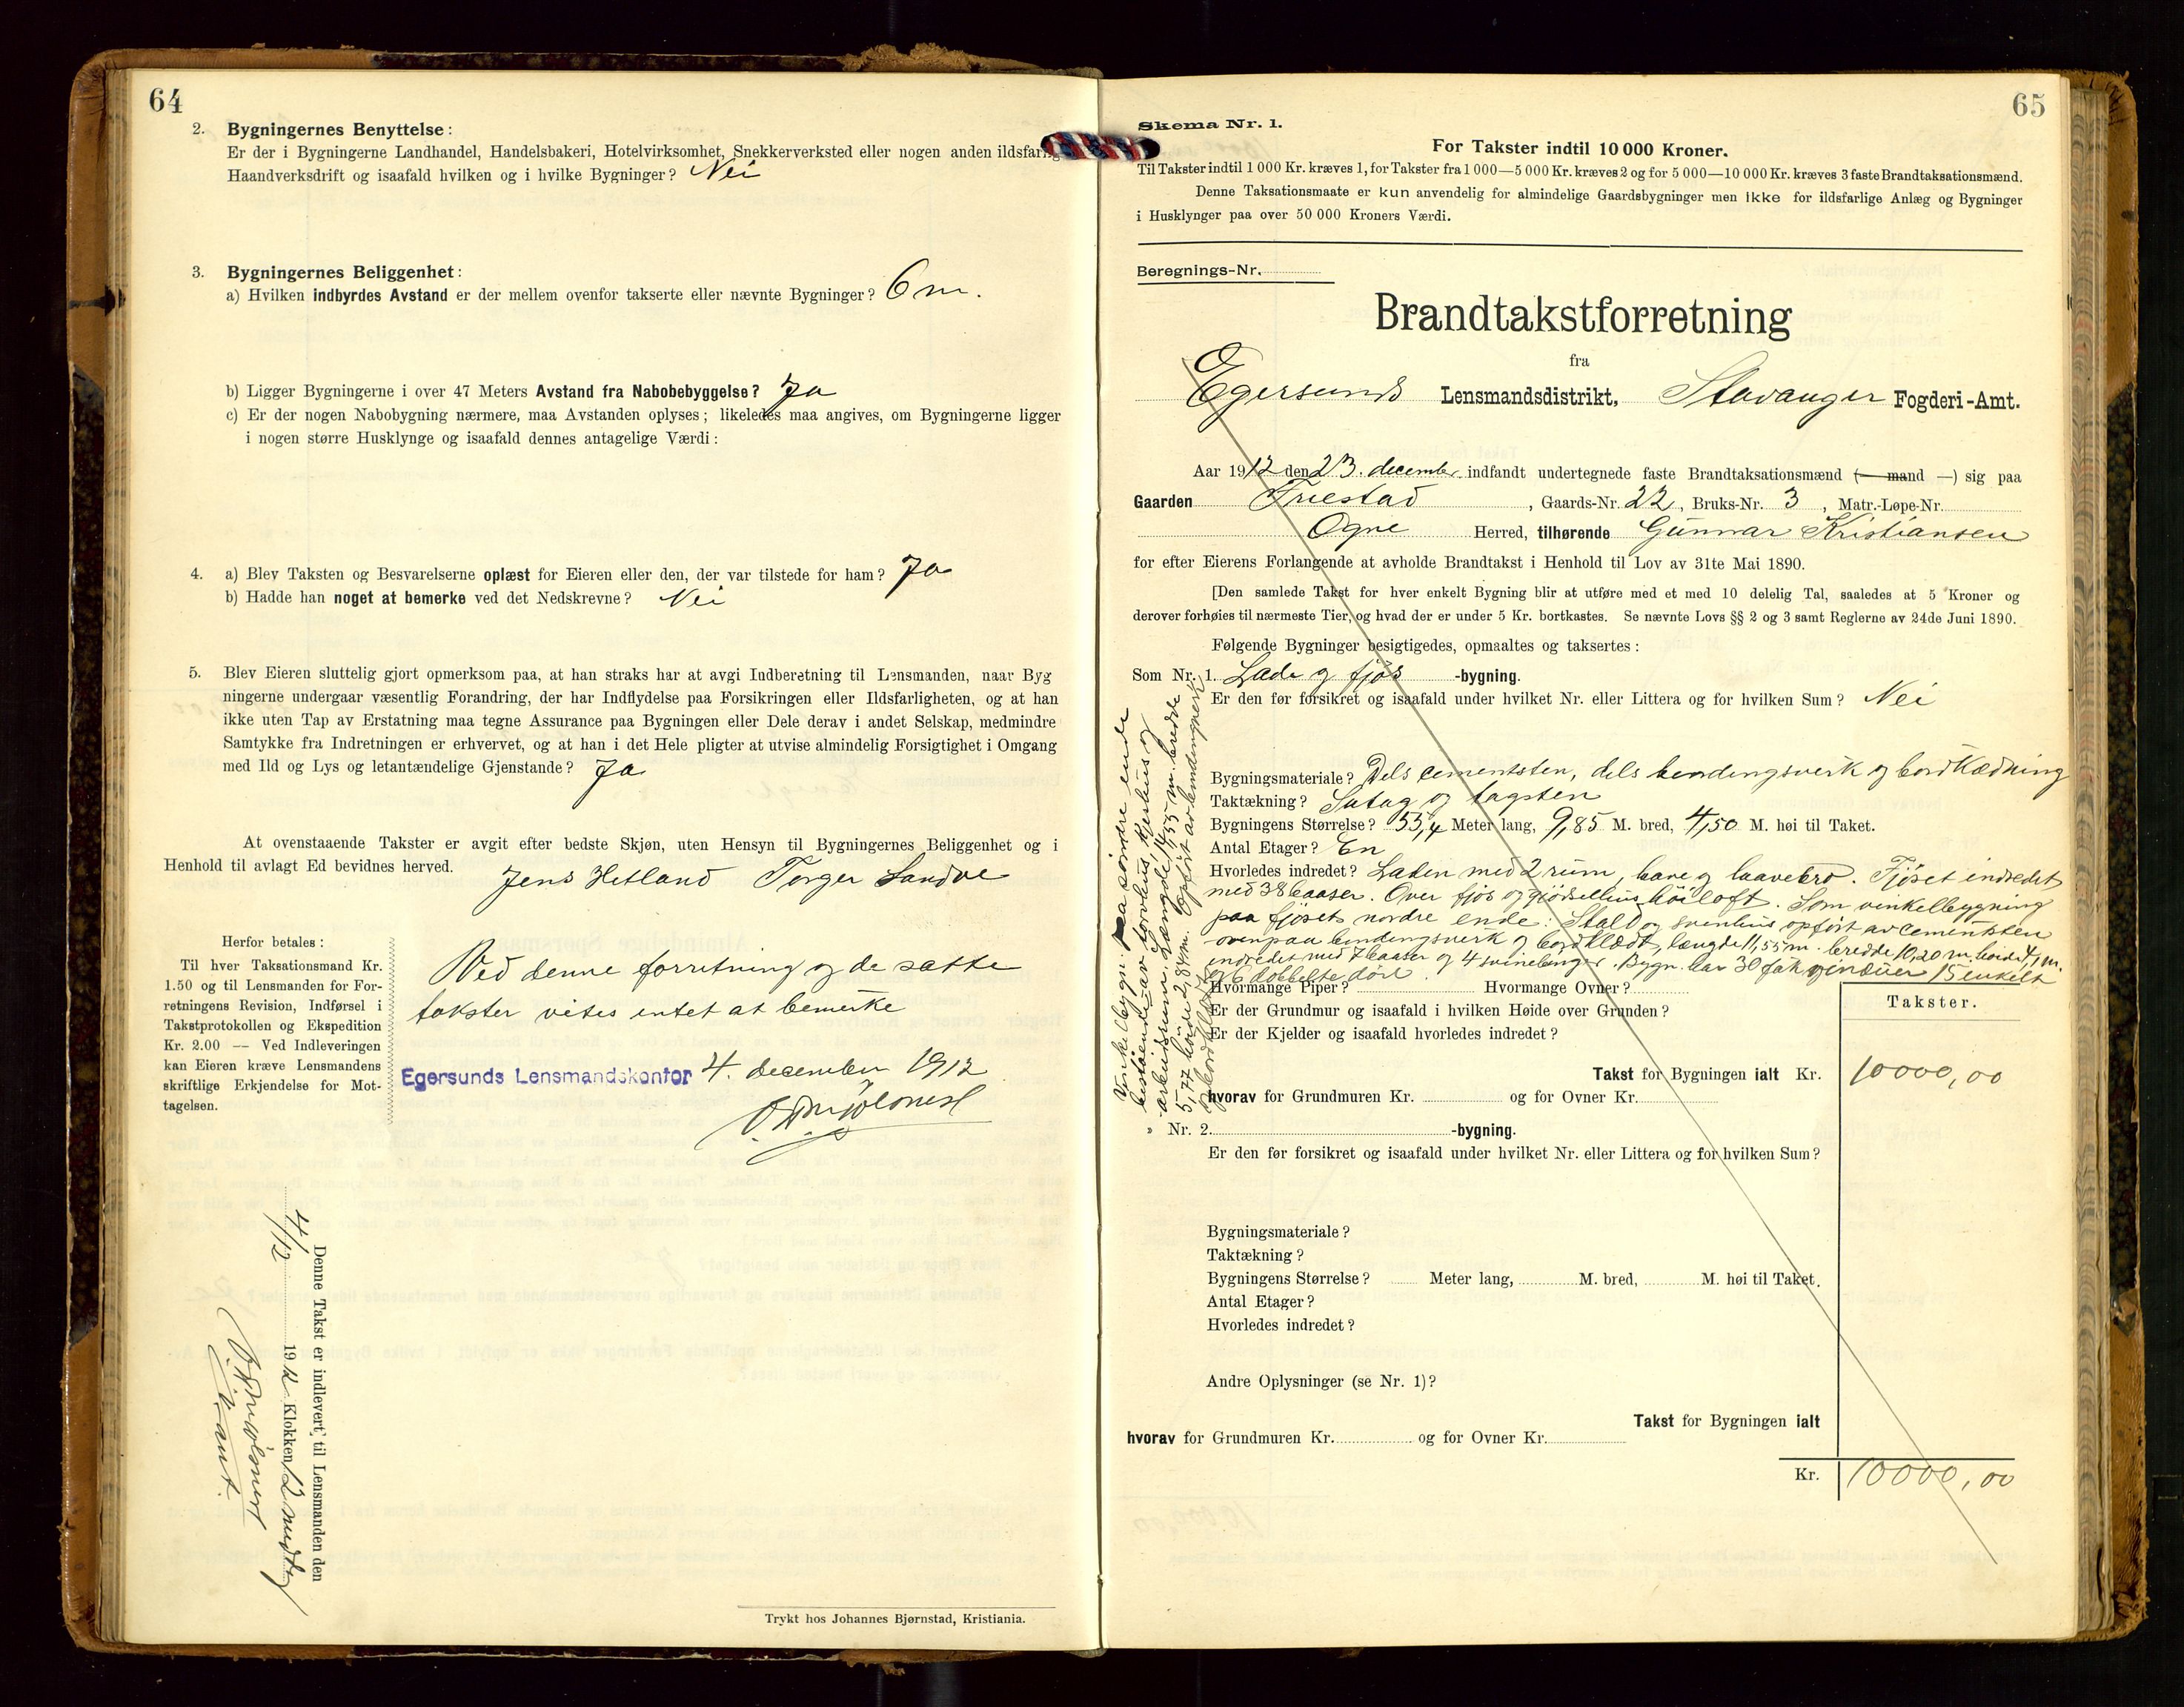 64
2. Bygningernes Benyttelse:
Er der i Bygningerne Landhandel, Handelsbakeri, Hotelvirksomhet, Snekkerverksted eller nogen anden ildsfarlig
Haandverksdrift og isaafald hvilken og i hvilke Bygninger? Nei
3. Bygningernes Beliggenhet:
a) Hvilken indbyrdes Avstand er der mellem ovenfor takserte eller nævnte Bygninger? 6 m.
b) Ligger Bygningerne i over 47 Meters Avstand fra Nabobebyggelse? Ja
c) Er der nogen Nabobygning nærmere, maa Avstanden oplyses; likeledes maa angives, om Bygningerne ligger
i nogen større Husklynge og isaafald dennes antagelige Værdi:
4. a) Blev Taksten og Besvarelserne oplæst for Eieren eller den, der var tilstede for ham? Ja
b) Hadde han noget at bemerke ved det Nedskrevne? Nei
5. Blev Eieren sluttelig gjort opmerksom paa, at han straks har at avgi Indberetning til Lensmanden, naar Byg
ningerne undergaar væsentlig Forandring, der har Indflydelse paa Forsikringen eller Ildsfarligheten, og at han
ikke uten Tap av Erstatning maa tegne Assurance paa Bygningen eller Dele derav i andet Selskap, medmindre
Samtykke fra Indretningen er erhvervet, og at han i det Hele pligter at utvise almindelig Forsigtighet i Omgang
med Ild og Lys og letantændelige Gjenstande? Ja
At ovenstaaende Takster er avgit efter bedste Skjøn, uten Hensyn til Bygningernes Beliggenhet og i
Henhold til avlagt Ed bevidnes herved.
Jens Hetland Torger Sandve
Herfor betales:
Til hver Taksationsmand Kr.
1.50 og til Lensmanden for For-
retningens Revision, Indførsel i
Takstprotokollen og Ekspedition
Kr. 2.00 — Ved Indleveringen
kan Eieren kræve Lensmandens
skriftlige Erkjendelse for Mot-
tagelsen.
Ved denne forretning og de satte
takster vites intet at bemerke
Egersunds Lensmandskontor 4. december 1912
Denne Takst er indlevert til Lensmanden den
4/12 1912 Klokken 12 middag
Trykt hos Johannes Bjørnstad, Kristiania.
65
Skema Nr. 1.
For Takster indtil 10 000 Kroner.
Til Takster indtil 1 000 Kr. kræves 1, for Takster fra 1 000—5 000 Kr. kræves 2 og for 5 000—10 000 Kr. kræves 3 faste Brandtaksationsmænd.
Denne Taksationsmaate er kun anvendelig for almindelige Gaardsbygninger men ikke for ildsfarlige Anlæg og Bygninger
i Husklynger paa over 50 000 Kroners Værdi.
Beregnings-Nr.
Brandtakstforretning
fra
Egersund Lensmandsdistrikt, Stavanger Fogderi-Amt.
Aar 1912 den 23. december indfandt undertegnede faste Brandtaksationsmænd (— mand —) sig paa
Gaarden Fuestad, Gaards-Nr. 22, Bruks-Nr. 3, Matr.-Løpe-Nr.
Ogne Herred, tilhørende Gunnar Kristiansen
for efter Eierens Forlangende at avholde Brandtakst i Henhold til Lov av 31te Mai 1890.
[Den samlede Takst for hver enkelt Bygning blir at utføre med et med 10 delelig Tal, saaledes at 5 Kroner og
derover forhøies til nærmeste Tier, og hvad der er under 5 Kr. bortkastes. Se nævnte Lovs §§ 2 og 3 samt Reglerne av 24de Juni 1890.
Følgende Bygninger besigtigedes, opmaaltes og taksertes:
Som Nr. 1. Lade og fjøs -bygning.
Er den før forsikret og isaafald under hvilket Nr. eller Littera og for hvilken Sum? Nei
Bygningsmateriale? Dels cementsten, dels bendingsverk og bordklædning
Taktækning? Sutag og tagsten
Bygningens Størrelse? 55,4 Meter lang, 9,85 M. bred, 4,50 M. høi til Taket.
Antal Etager? En
Hvorledes indredet? Laden med 2 rum, lave og laavebro. Fjøset indredet
med 38 baaser. Over fjøs og gjødselhus høiloft. Som vinkelbygning
paa fjøsets nordre ende: Stald og svinhus opført av cementsten
ovenpaa bendingsverk og bordklædt, længde 11,55 m. bredde 10,20 m, høide 4,1 m.
indredet med 7 baaser og 4 svinebinger. Bygn. har 30 fak vinduer 15 enkelt
og 6 dobbelte døre.
Vinkelbygn. paa søndre ende
bestaaende av torvhus, kjelhus og
arbeidsrum. Længde 14,55 m. bredde
5,77 høide 2,84 m. Opført av bendingverk
og bordklædt
Hvormange Piper? Hvormange Ovner?
Er der Grundmur og isaafald i hvilken Høide over Grunden?
Er der Kjelder og isaafald hvorledes indredet?
Takster.
Takst for Bygningen ialt Kr. 10000,00
hvorav for Grundmuren Kr. og for Ovner Kr.
» Nr. 2. -bygning.
Er den før forsikret og isaafald under hvilket Nr. eller Littera og for hvilken Sum?
Bygningsmateriale?
Taktækning?
Bygningens Størrelse? Meter lang, M. bred, M. høi til Taket.
Antal Etager?
Hvorledes indredet?
Andre Oplysninger (se Nr. 1)?
Takst for Bygningen ialt
hvorav for Grundmuren Kr. og for Ovner Kr.
Kr. 10000,00